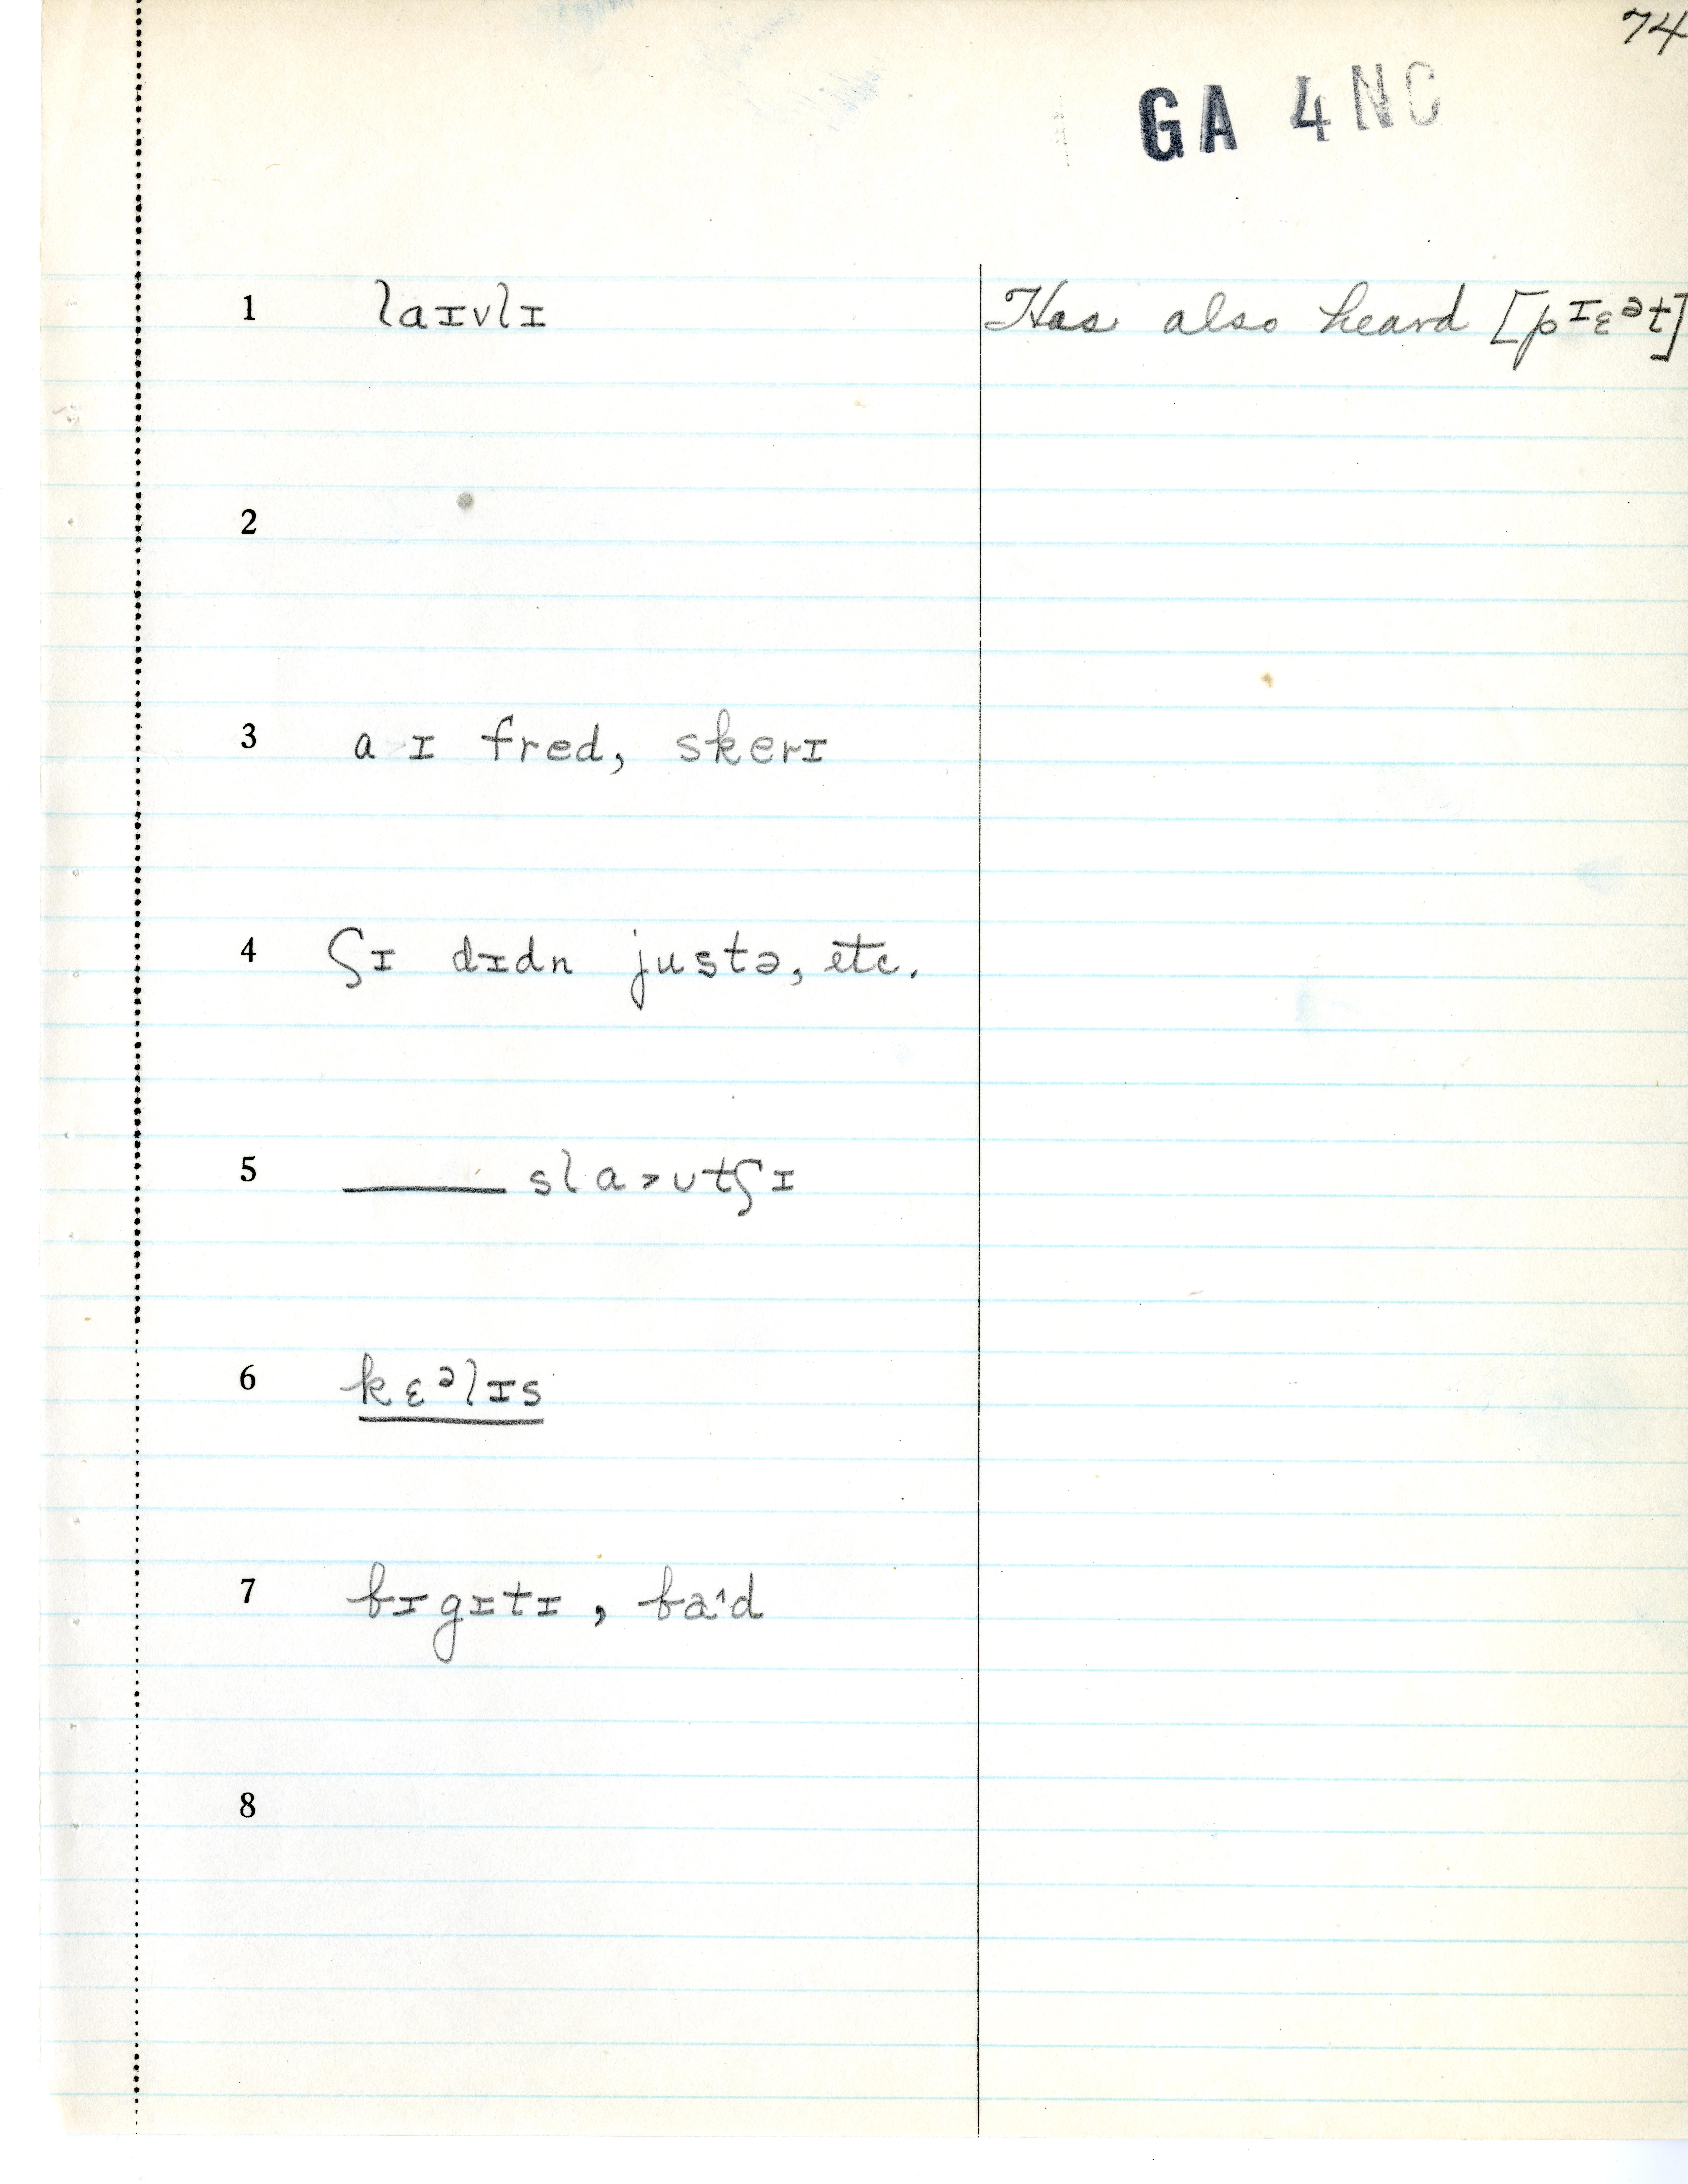 74
GA 4 NC
1 laɪvlɪ Has also heard [pɪɛᵊt]
2
3 a ɪ fred, skerɪ
4 ʃɪ dɪdn justə, etc.
5 ——— sla˃ʊtʃɪ
6 kɛᵊlɪs
7 bɪgɪtɪ, ba^d
8